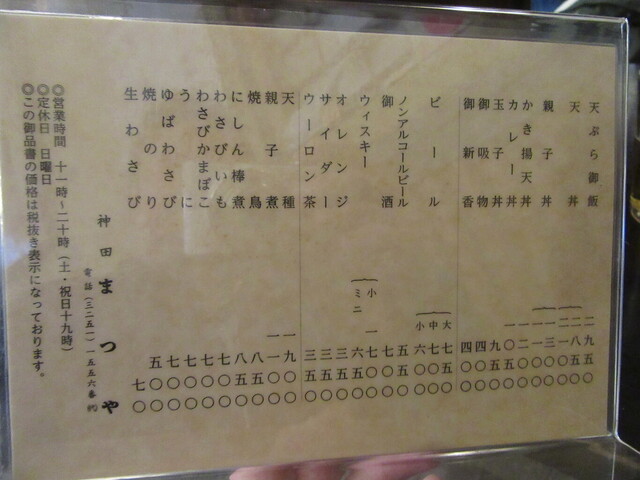 天ぷら御飯 二九五〇
天丼
親子丼
かき揚天丼
カレー丼
玉子丼 九五〇
御吸物
御新香
ビール 大 七五〇
中 七〇〇
小 六〇〇
ノンアルコールビール 五五〇
御酒
ウィスキー 小
ミニ 六五〇
オレンジ 三五〇
サイダー 三五〇
ウーロン茶 三五〇
天種 一九〇〇
親子煮 一一〇〇
焼鳥 八五〇
にしん棒煮 八五〇
わさびいも 七〇〇
わさびかまぼこ 七〇〇
うに 七〇〇
ゆばわさび 七〇〇
焼のり 五〇〇
生わさび 七〇
神田まつや
電話(三二五一)一五五六番㈹
◎営業時間 十一時〜二十時(土・祝日十九時)
◎定休日 日曜日
◎この御品書の価格は税抜き表示になっております。